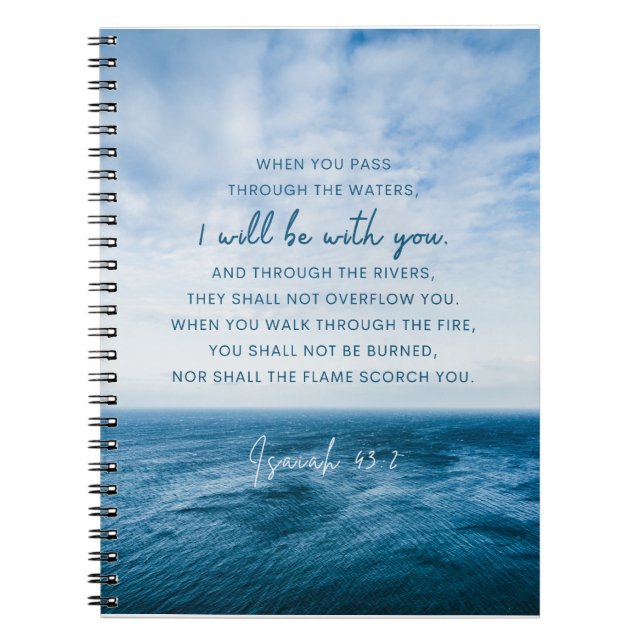 WHEN YOU PASS
THROUGH THE WATERS,
I will be with you.
AND THROUGH THE RIVERS,
THEY SHALL NOT OVERFLOW YOU.
WHEN YOU WALK THROUGH THE FIRE,
YOU SHALL NOT BE BURNED,
NOR SHALL THE FLAME SCORCH YOU.
Isaiah 43:2